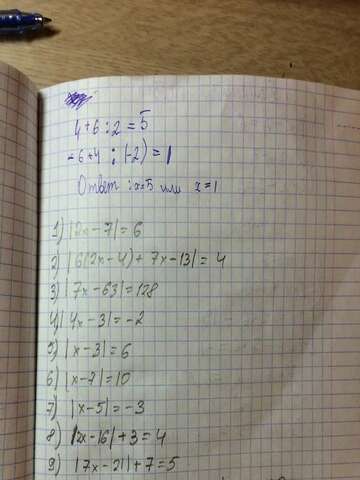 4+6:2=5
-6+4:(-2)=1
Ответ: x=5 или x=1
1) |2x-7|=6
2) |6(2x-4)+7x-13|=4
3) |7x-63|=128
4) |4x-3|=-2
5) |x-3|=6
6) |x-2|=10
7) |x-5|=-3
8) |2x-16|+3=4
9) |7x-21|+7=5